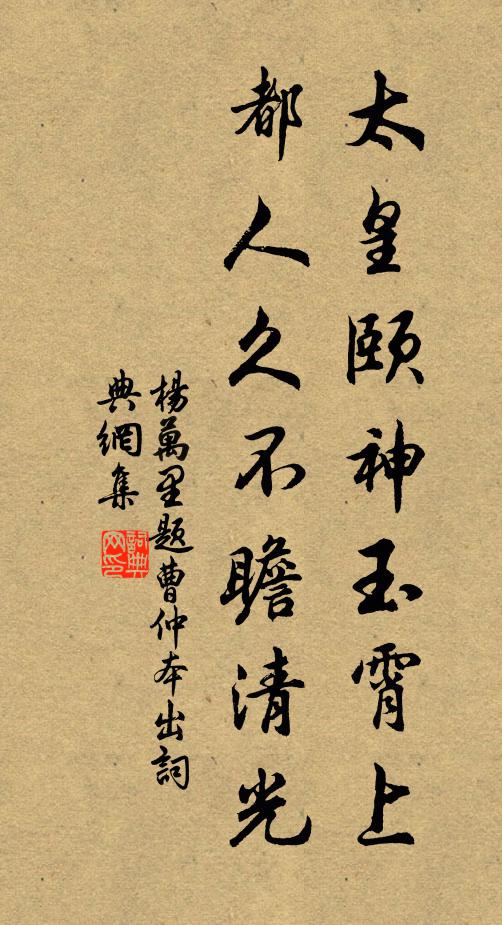 太皇頤神玉霄上
都人久不瞻清光
楊萬里題曹仲本出詞
典網集
詞典
网印